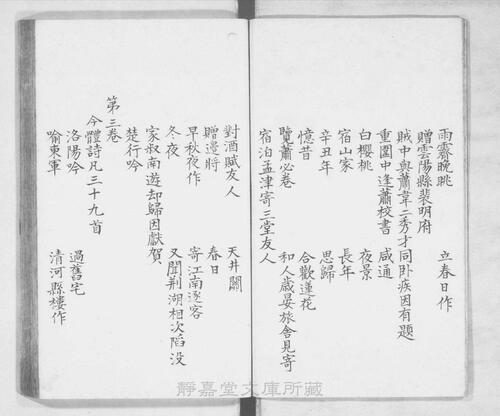 雨霽晚眺　立春日作
贈雲陽縣裴明府
賊中與蕭韋二秀才同卧疾因有題
重圍中逢蕭校書　咸通
白櫻桃　夜景
宿山家　長年
辛丑年　思歸
憶昔　合歡蓮花
覽蕭必卷　和人歲晏旅舍見寄
宿泊孟津寄三堂友人
對酒賦友人　天井關
贈邊將　春日
早秋夜作　寄江南逐客
冬夜　又聞荆湖相次陷没
家叔南遊却歸因獻賀
楚行吟
第三卷
今體詩凡三十九首
洛陽吟　過舊宅
喻東軍　清河縣樓作
靜嘉堂文庫所藏